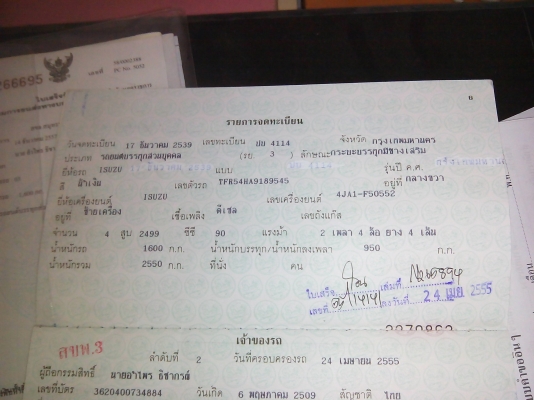 266695
รายการจดทะเบียน
วันจดทะเบียน 17 ธันวาคม 2539 เลขทะเบียน 4114 จังหวัด กรุงเทพมหานคร
ประเภท รถยนต์บรรทุกส่วนบุคคล (รย 3 ) ลักษณะ กระบะบรรทุกมีข้างเสริม
ยี่ห้อรถ ISUZU แบบ รุ่นปี ค.ศ.
สี น้ำเงิน เลขตัวรถ TFR54HA9189545 อยู่ที่ กลางขวา
ยี่ห้อเครื่องยนต์ ISUZU เลขเครื่องยนต์ 4JA1-F50552
อยู่ที่ ซ้ายเครื่อง เชื้อเพลิง ดีเซล เลขถังแก๊ส
จำนวน 4 สูบ 2499 ซีซี 90 แรงม้า 2 เพลา 4 ล้อ ยาง 4 เส้น
น้ำหนักรถ 1600 ก.ก. น้ำหนักบรรทุก/น้ำหนักลงเพลา 950 ก.ก.
น้ำหนักรวม 2550 ก.ก. ที่นั่ง คน
ใบเสร็จ เล่มที่
เลขที่ ลงวันที่ 24 เมย 2555
ลขพ.3
เจ้าของรถ
ลำดับที่ 2 วันที่ครอบครองรถ 24 เมษายน 2555
ผู้ถือกรรมสิทธิ์ นายอำไพร ธิชากรณ์
เลขที่บัตร 3620400734884 วันเกิด 6 พฤษภาคม 2509 สัญชาติ ไทย